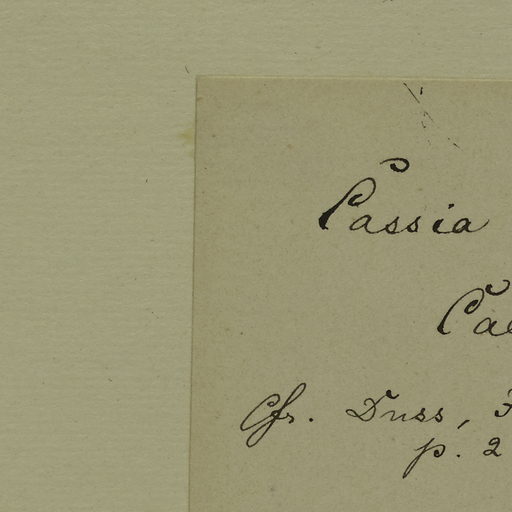 Cassia
Cfr. Duss,
p. 2